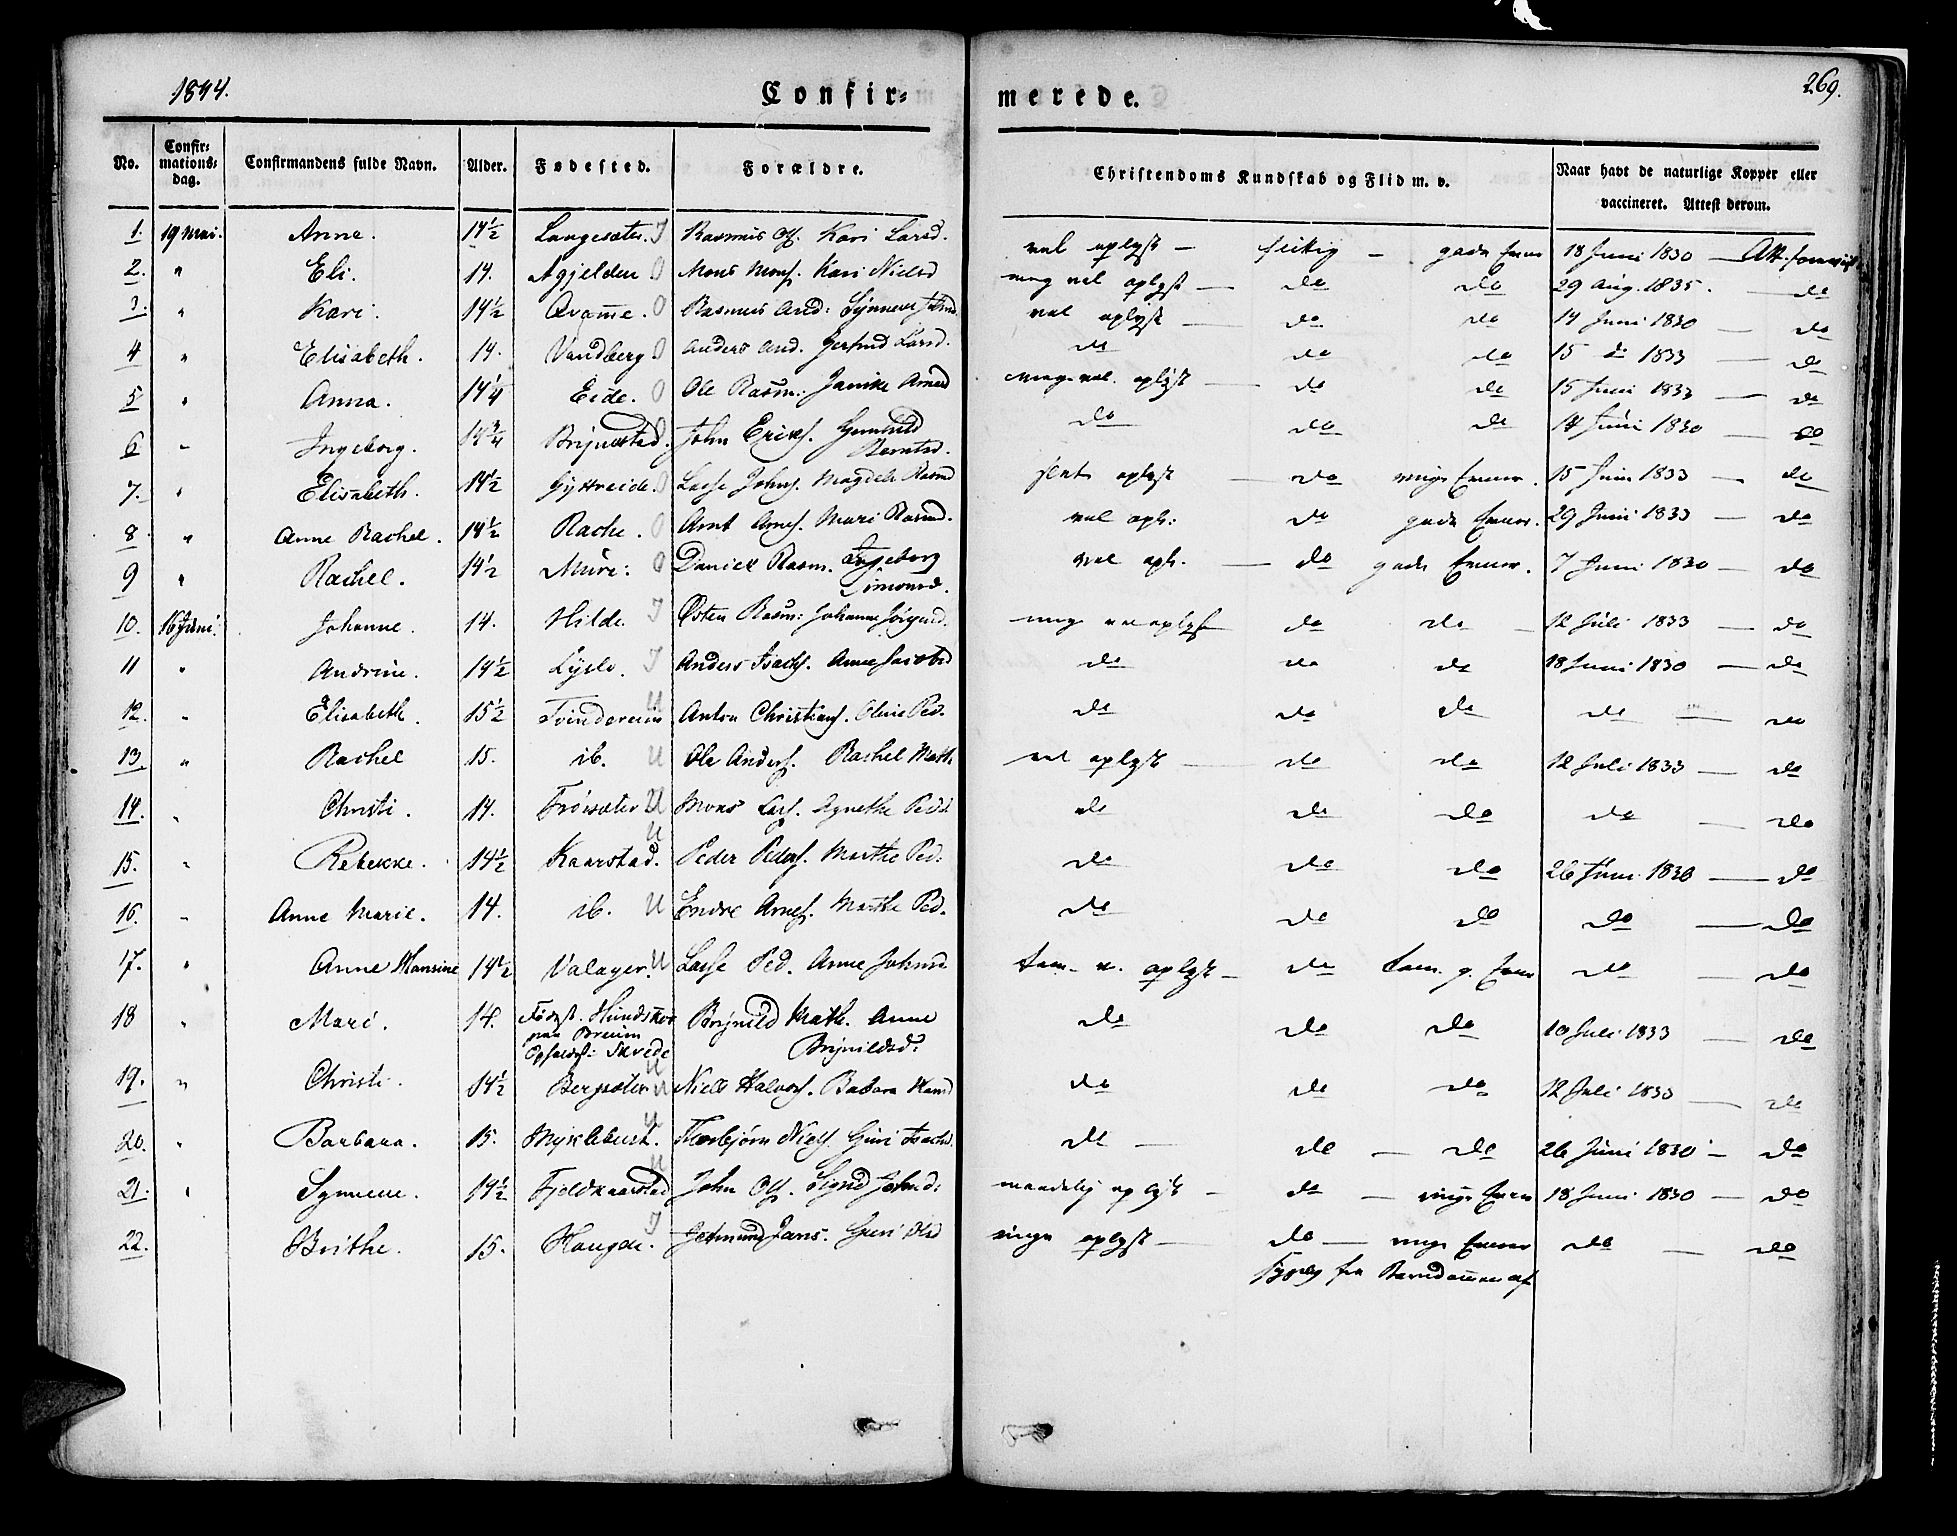 1844.
Confir=
merede.
269.
No.
Confir=
mations=
dag.
Confirmandens fulde Navn.
Alder.
Fødested.
Forældre.
Christendoms Kundskab og Flid m. v.
Naar havt de naturlige Kopper eller
vaccineret. Attest derom.
1. 19 Mai. Anne. 14½ Langesæter. I Rasmus Ols. Kari Larsd. vel oplyst — flitig — gode Evner 18 Juni 1830 — Att.
2. " Eli. 14. Agjelden O Mons Mons. Kari Nielsd meg vel oplyst — do do 29 Aug. 1835. — do
3. " Kari. 14½ O Rasmus And: Synneve vel oplyst — do do 14 Juni 1830 — do
4 " Elisabeth. 14. Vandberg O Anders And. Gertrud Larsd. do do do 15 do 1833 — do
5 " Anna. 14¼ Eide. O Ole Rasm: Janike meg vel. oplyst — do do 15 Juni 1833 — do
6 " Ingeborg. 14¾ Brynestad. John Eriks. Gunhild
Berntsd. do do do 14 Juni 1830 — do
7. " Elisabeth. 14½ O Lasse Johns. Magdele Rasmd slet oplyst — do ringe Evner. 15 Juni 1833 — do
8 " Anne Rachel. 14½ Rache. O Arnt Arnes. Mari Rasmd. vel opl: do gode Evner. 29 Juni 1833 — do
9 " Rachel. 14½ Muri: O Daniel Rasm. Ingeborg
Simonsd. vel opl. — do gode Evner. 7 Juni 1830 — do
10. 16 Juni. Johanne. 14. Hilde. I Østen Rasm: Johanne meg vel oplyst do do — 12 Juli 1833 — do
11 " Andrine. 14½ I Anders Isachs. Anne Jacobsd do do do 18 Juni 1830 — do
12. " Elisabeth. 15½ Tvindereim U Anton Christians. Oline Ped. do do do do — do
13. " Rachel 15. ib. U Ole Anders. Rachel Math. vel oplyst — do do 12 Juli 1833 — do
14. " Christi. 14. Frøisæter U Mons Lass. Agnethe Peds do do do do — do
15. " Rebekke. 14½ Kaarstad. U Peder Peders. Marthe Ped: do do do 26 Juni 1830 — do
16. " Anne Marie. 14. ib. U Endre Arnes. Marthe Ped. do do do do — do
17. " Anne Hansine 14½ Valager. U Lasse Ped. Anne Johnsd tem. v. oplyst — do tem. g. Evner do — do
18 " Mari. 14. Fødest. Hundskor
paa Breum
Opholdst: Skrede U Brynild Math. Anne
Brynildsd: do do do 10 Juli 1833 — do
19. " Christi. 14½ Bergsæter U Niels Halvors. Babara do do do 12 Juli 1833 — do
20. " Barbara. 15. Myklebust. U Thorbjørn Niels. Guri Isachsd. do — do — do 26 Juni 1830 — do
21. " Synneve. 14½ Fjeldkaarstad U John Ols. Sigrid Johnsd: maadelig oplyst — do — ringe Evner 18 Juni 1830 — do
22. Brithe. 15. Haugde. I Jetmund Jans. Guri Olsd ringe oplyst — do — ringe Evner do — do
fra Barndommen af